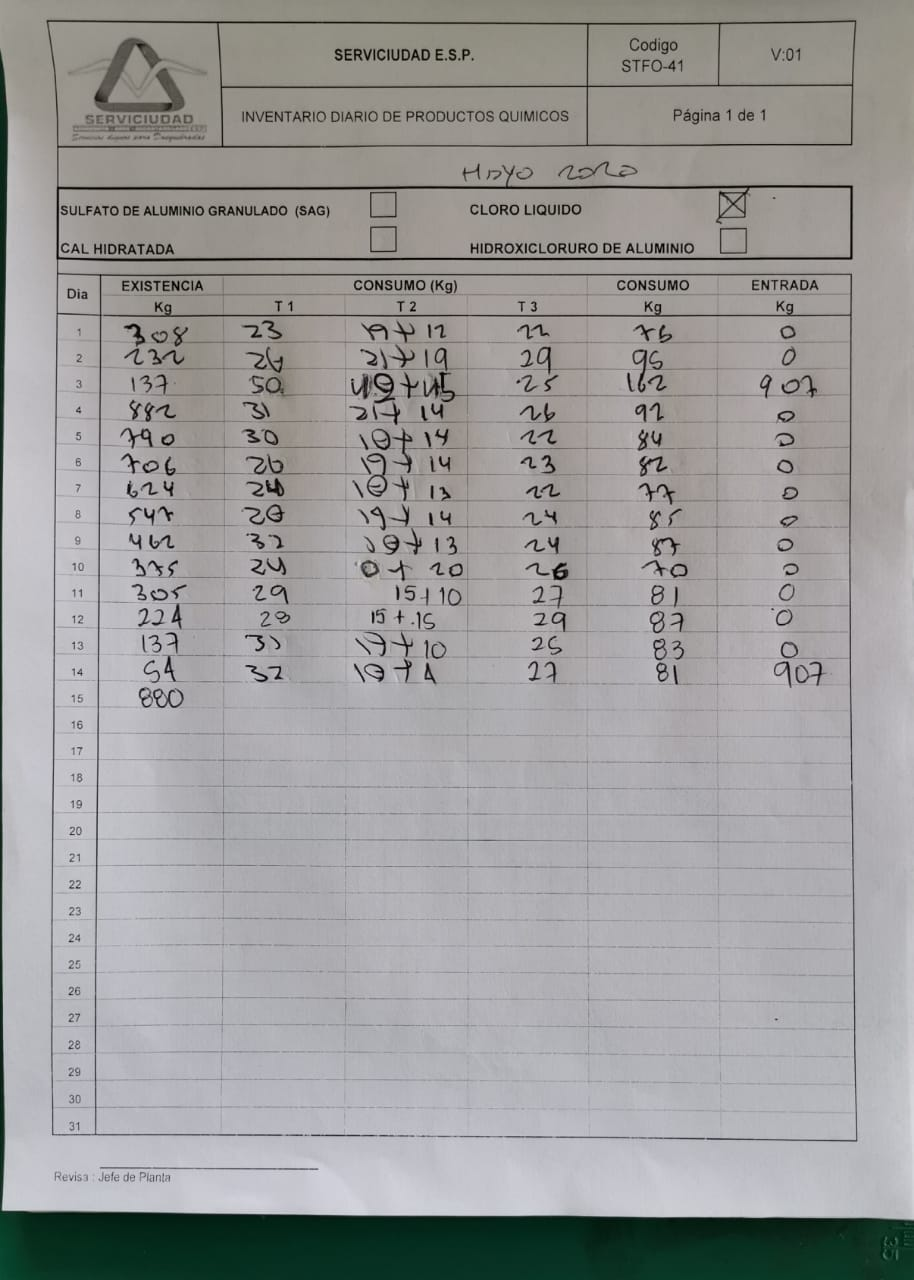 SERVICIUDAD E.S.P.
Codigo
STFO-41
V:01
SERVICIUDAD
INVENTARIO DIARIO DE PRODUCTOS QUIMICOS
Página 1 de 1
Mayo 2020
SULFATO DE ALUMINIO GRANULADO (SAG) CLORO LIQUIDO
CAL HIDRATADA HIDROXICLORURO DE ALUMINIO
Dia EXISTENCIA CONSUMO (Kg) CONSUMO ENTRADA
Kg T 1 T 2 T 3 Kg Kg
1 308 23 19+12 22 76 0
2 232 26 21+19 29 95 0
3 137 50 +45 25 162 907
4 882 31 21+14 26 92 0
5 790 30 18+14 22 84 0
6 706 26 19+14 23 82 0
7 624 24 18+13 22 77 0
8 547 28 19+14 24 85 0
9 462 32 18+13 24 87 0
10 375 24 0+20 26 70 0
11 305 29 15+10 27 81 0
12 224 28 15+.15 29 87 0
13 137 31 17+10 25 83 0
14 54 32 18+4 27 81 907
15 880
16
17
18
19
20
21
22
23
24
25
26
27
28
29
30
31
Revisa : Jefe de Planta
35